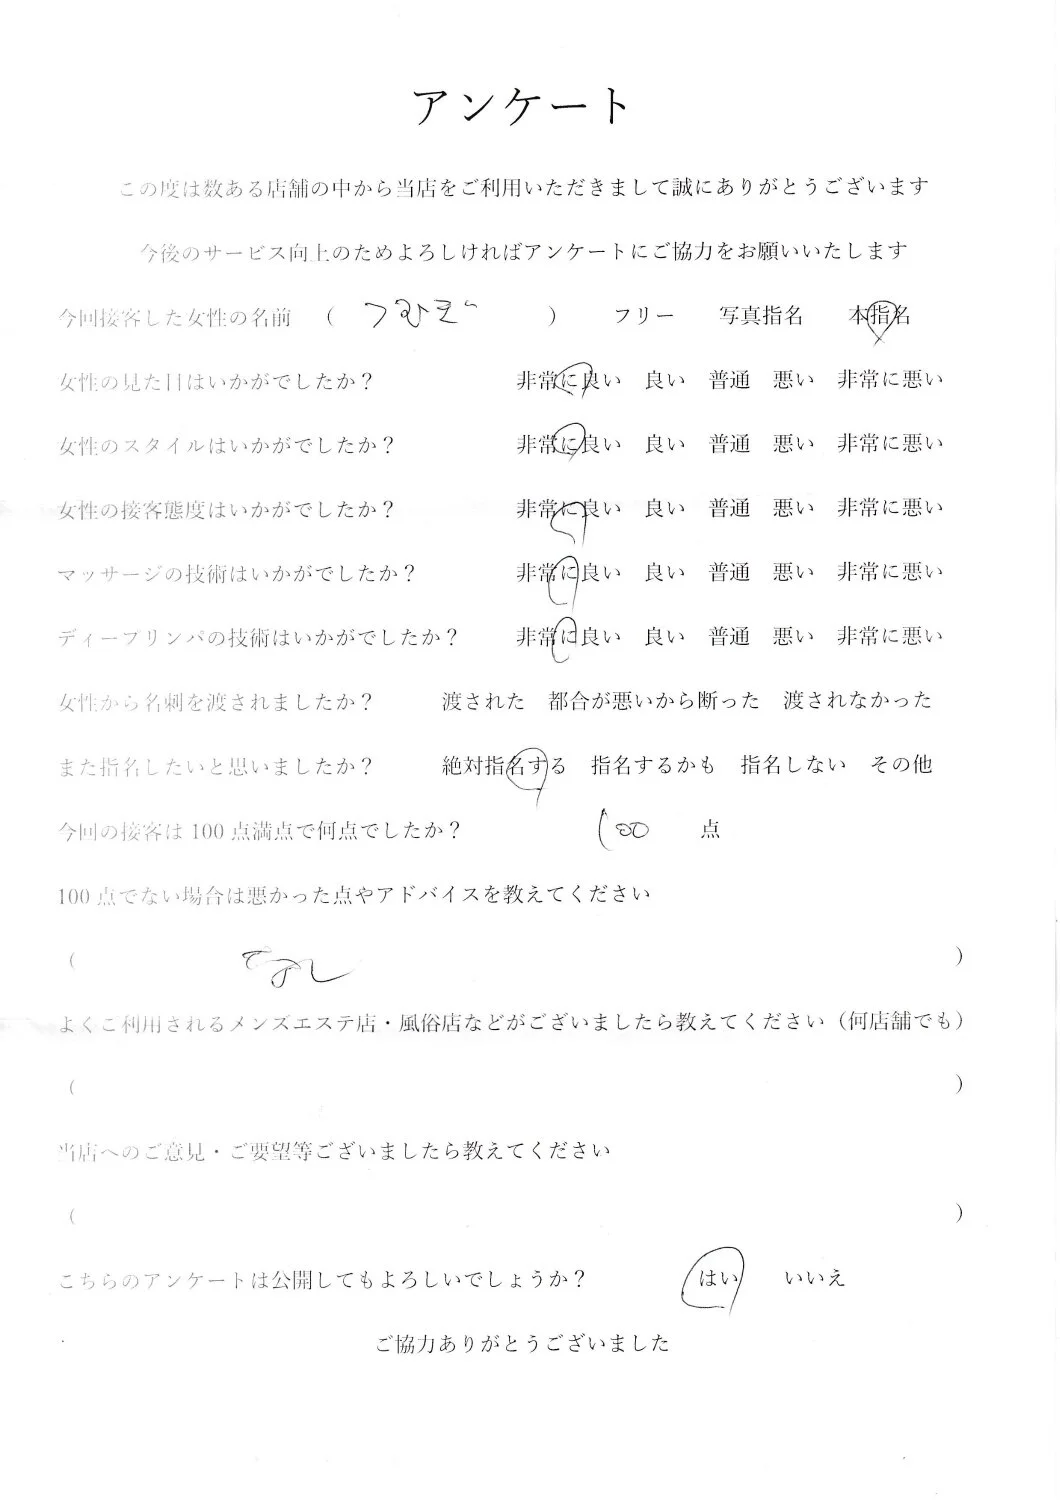 アンケート
この度は数ある店舗の中から当店をご利用いただきまして誠にありがとうございます
今後のサービス向上のためよろしければアンケートにご協力をお願いいたします
今回接客した女性の名前 ( ) フリー 写真指名 本指名
女性の見た目はいかがでしたか？ 非常に良い 良い 普通 悪い 非常に悪い
女性のスタイルはいかがでしたか？ 非常に良い 良い 普通 悪い 非常に悪い
女性の接客態度はいかがでしたか？ 非常に良い 良い 普通 悪い 非常に悪い
マッサージの技術はいかがでしたか？ 非常に良い 良い 普通 悪い 非常に悪い
ディープリンパの技術はいかがでしたか？ 非常に良い 良い 普通 悪い 非常に悪い
女性から名刺を渡されましたか？ 渡された 都合が悪いから断った 渡されなかった
また指名したいと思いましたか？ 絶対指名する 指名するかも 指名しない その他
今回の接客は 100 点満点で何点でしたか？ 100 点
100 点でない場合は悪かった点やアドバイスを教えてください
( なし )
よくご利用されるメンズエステ店・風俗店などがございましたら教えてください（何店舗でも）
( )
当店へのご意見・ご要望等ございましたら教えてください
( )
こちらのアンケートは公開してもよろしいでしょうか？ はい いいえ
ご協力ありがとうございました